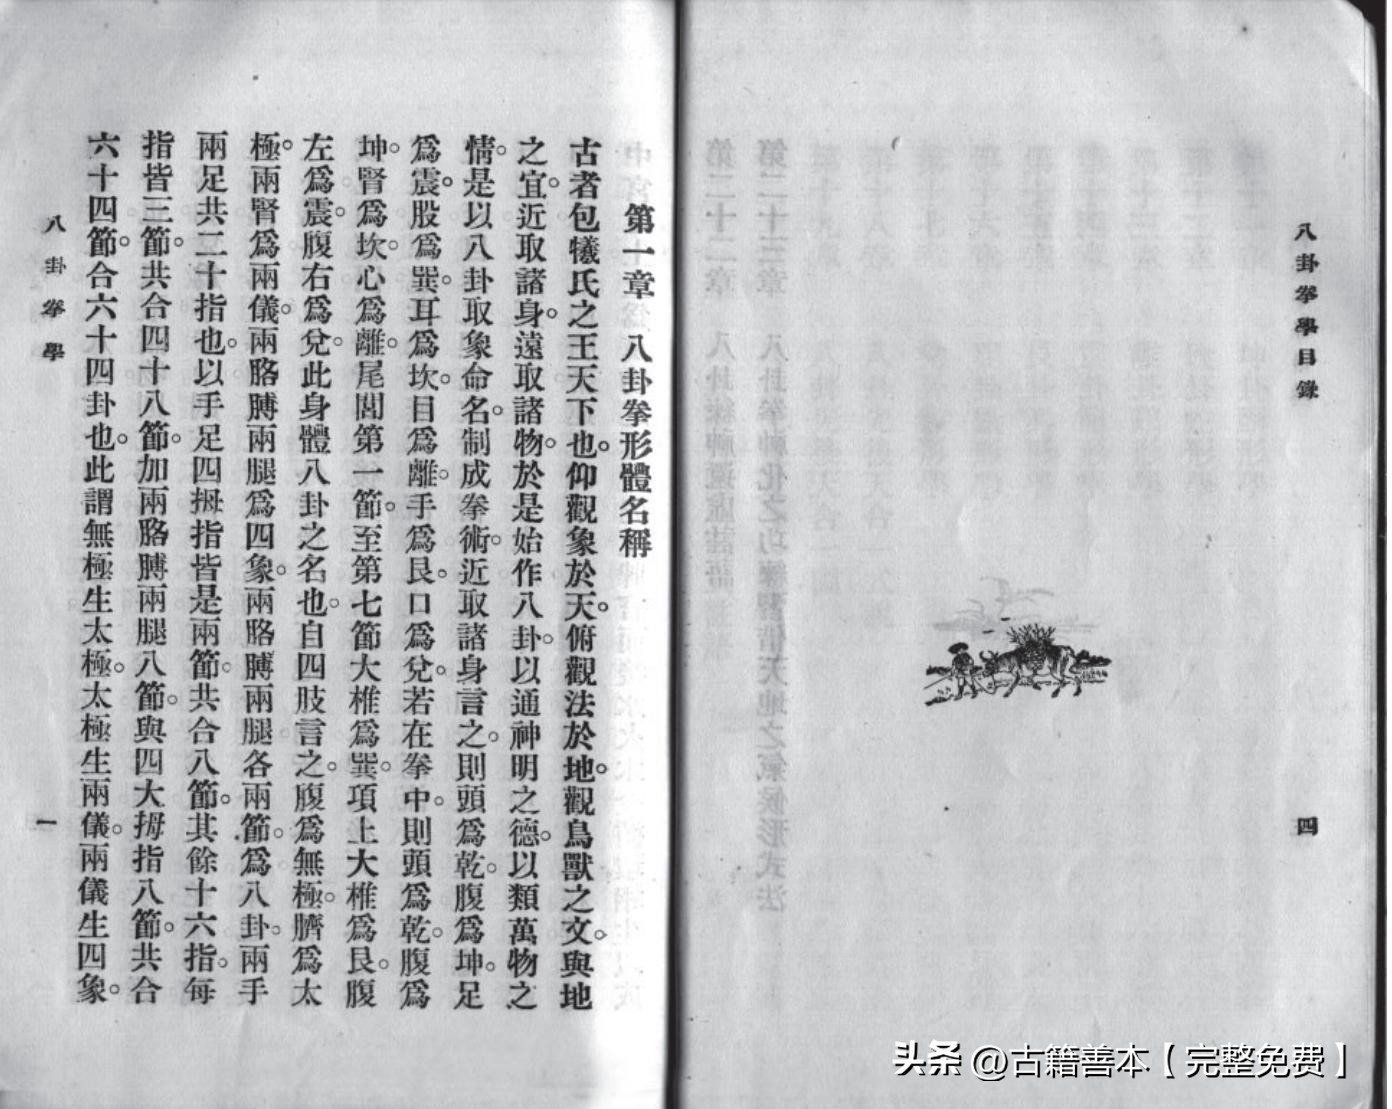 八卦拳學目錄
四
第一章 八卦拳形體名稱
古者包犧氏之王天下也。仰觀象於天。俯觀法於地。觀鳥獸之文。與地
之宜。近取諸身。遠取諸物。於是始作八卦。以通神明之德。以類萬物之
情。是以八卦取象命名。制成拳術。近取諸身言之。則頭爲乾。腹爲坤。足
爲震。股爲巽。耳爲坎。目爲離。手爲艮。口爲兌。若在拳中。則頭爲乾。腹爲
坤。腎爲坎。心爲離。尾閭第一節。至第七節大椎爲巽。項上大椎爲艮。腹
左爲震。腹右爲兌。此身體八卦之名也。自四肢言之。腹爲無極。臍爲太
極。兩腎爲兩儀。兩胳膊兩腿爲四象。兩胳膊兩腿各兩節。爲八卦。兩手
兩足共二十指也。以手足四拇指皆是兩節。共合八節。其餘十六指。每
指皆三節。共合四十八節。加兩胳膊兩腿八節。與四大拇指八節。共合
六十四節。合六十四卦也。此謂無極生太極。太極生兩儀。兩儀生四象。
八卦拳學
一
头条 @古籍善本【完整免费】